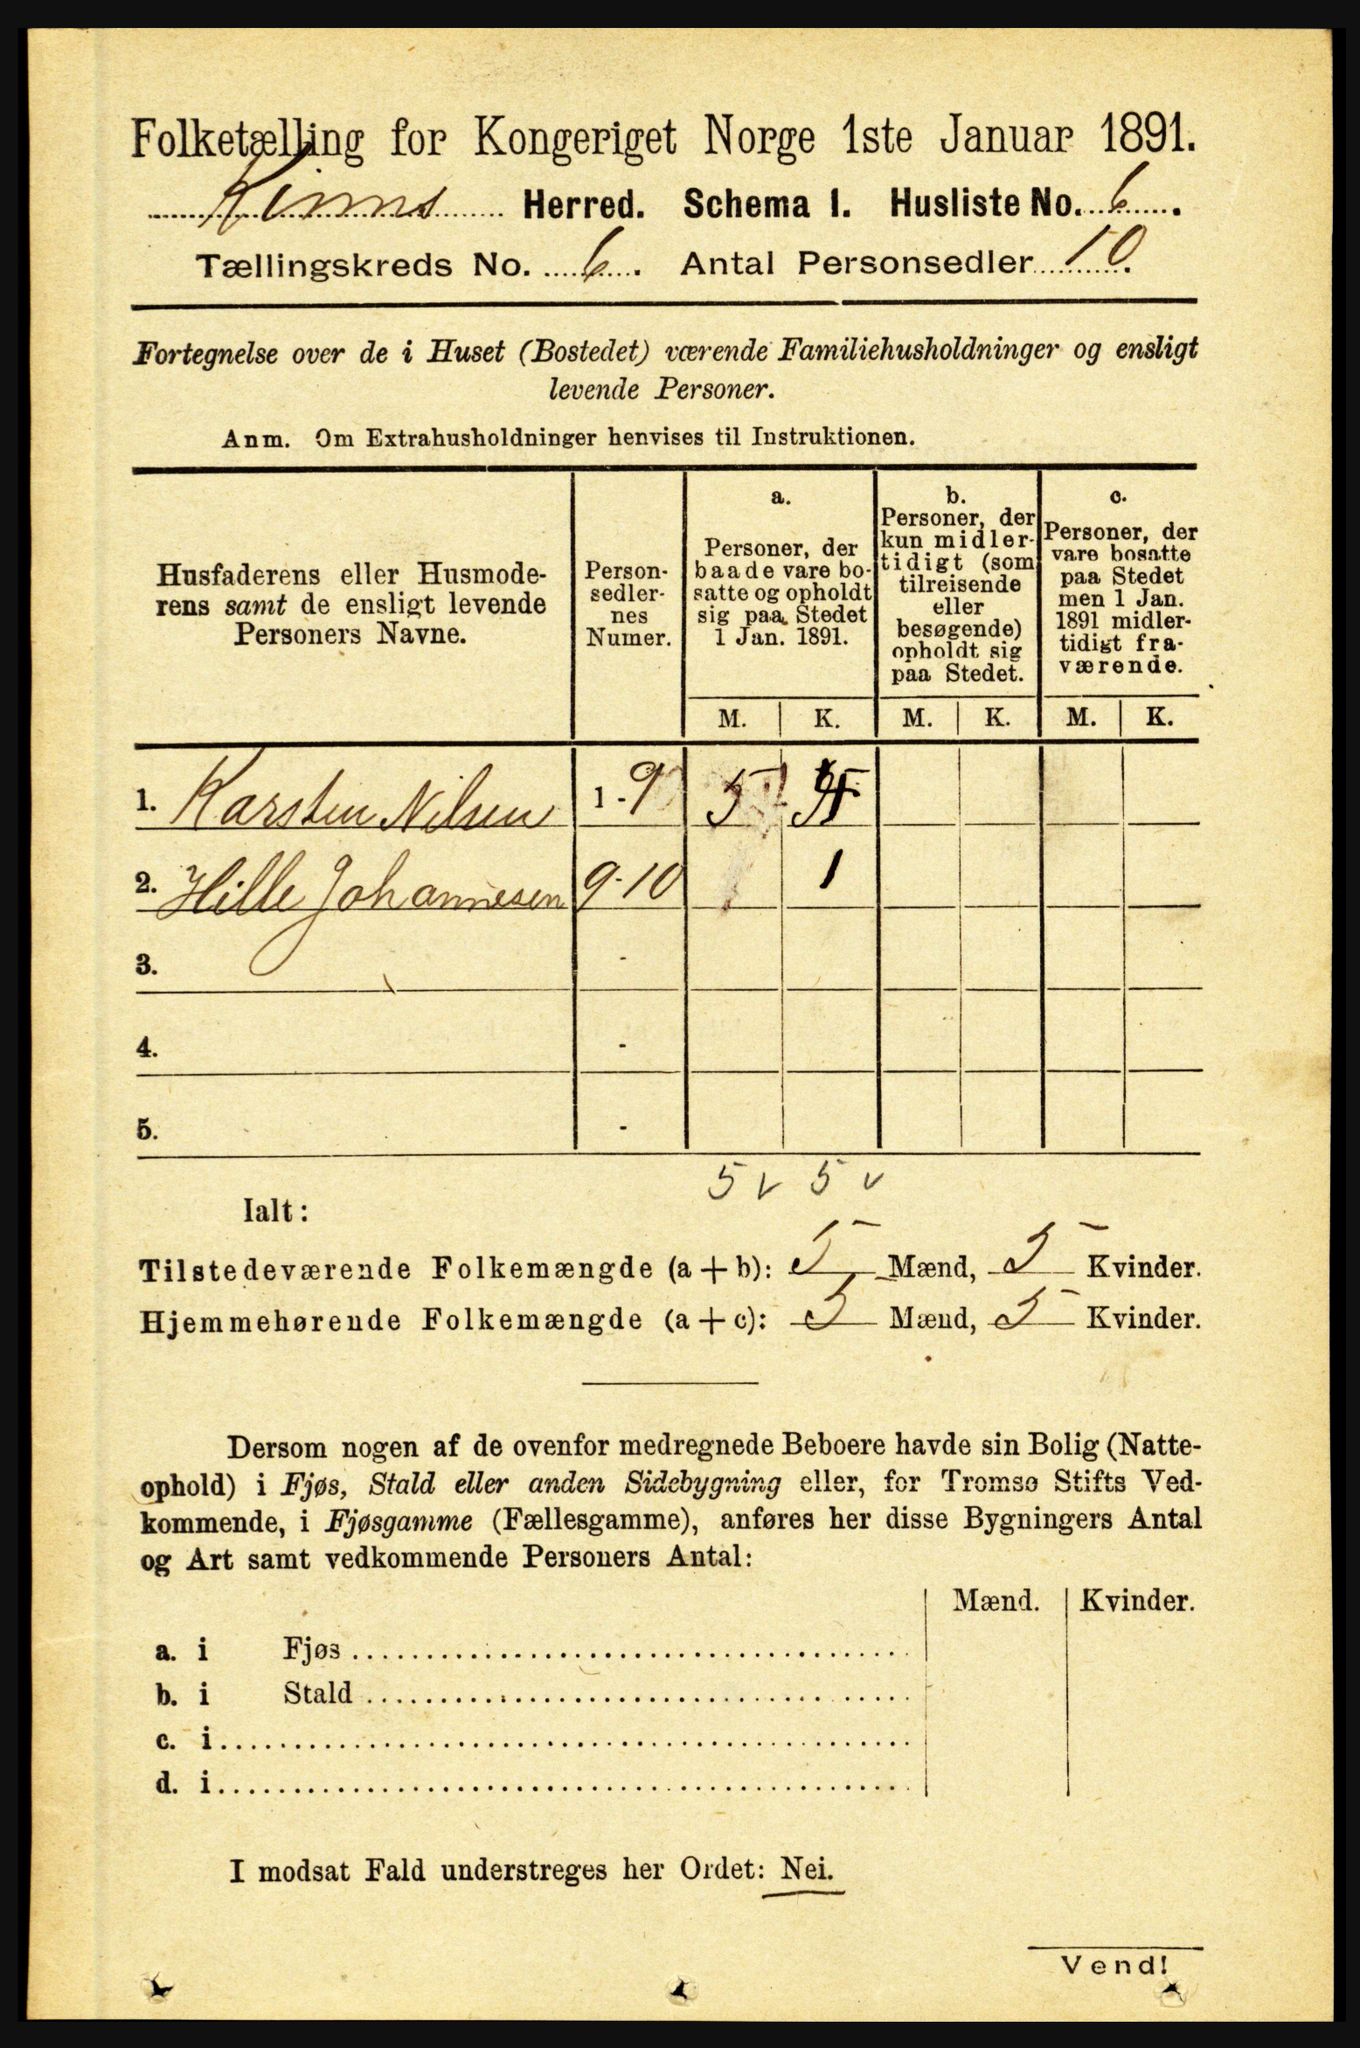 Folketælling for Kongeriget Norge 1ste Januar 1891.
Kinns Herred. Schema 1. Husliste No. 6.
Tællingskreds No. 6. Antal Personsedler 10.
Fortegnelse over de i Huset (Bostedet) værende Familiehusholdninger og ensligt
levende Personer.
Anm. Om Extrahusholdninger henvises til Instruktionen.
Husfaderens eller Husmode-
rens samt de ensligt levende
Personers Navne.
Person-
sedler-
nes
Numer.
a.
Personer, der
baade vare bo-
satte og opholdt
sig paa Stedet
1 Jan. 1891.
b.
Personer, der
kun midler-
tidigt (som
tilreisende
eller
besøgende)
opholdt sig
paa Stedet.
c.
Personer, der
vare bosatte
paa Stedet
men 1 Jan.
1891 midler-
tidigt fra-
værende.
M. K. M. K. M. K.
1. Karsten Nilsen 1 - 9 5
2. Hille Johannesen 9-10 1
3. -
4. -
5. -
5 v 5 v
Ialt:
Tilstedeværende Folkemængde (a + b): 5 Mænd, 5 Kvinder.
Hjemmehørende Folkemængde (a + c): 5 Mænd, 5 Kvinder.
Dersom nogen af de ovenfor medregnede Beboere havde sin Bolig (Natte-
ophold) i Fjøs, Stald eller anden Sidebygning eller, for Tromsø Stifts Ved-
kommende, i Fjøsgamme (Fællesgamme), anføres her disse Bygningers Antal
og Art samt vedkommende Personers Antal:
Mænd. Kvinder.
a. i Fjøs
b. i Stald
c. i
d. i
I modsat Fald understreges her Ordet: Nei.
Vend!